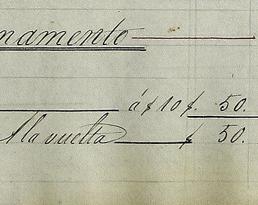 namento
á $10 $. 50.
A la vuelta $ 50.